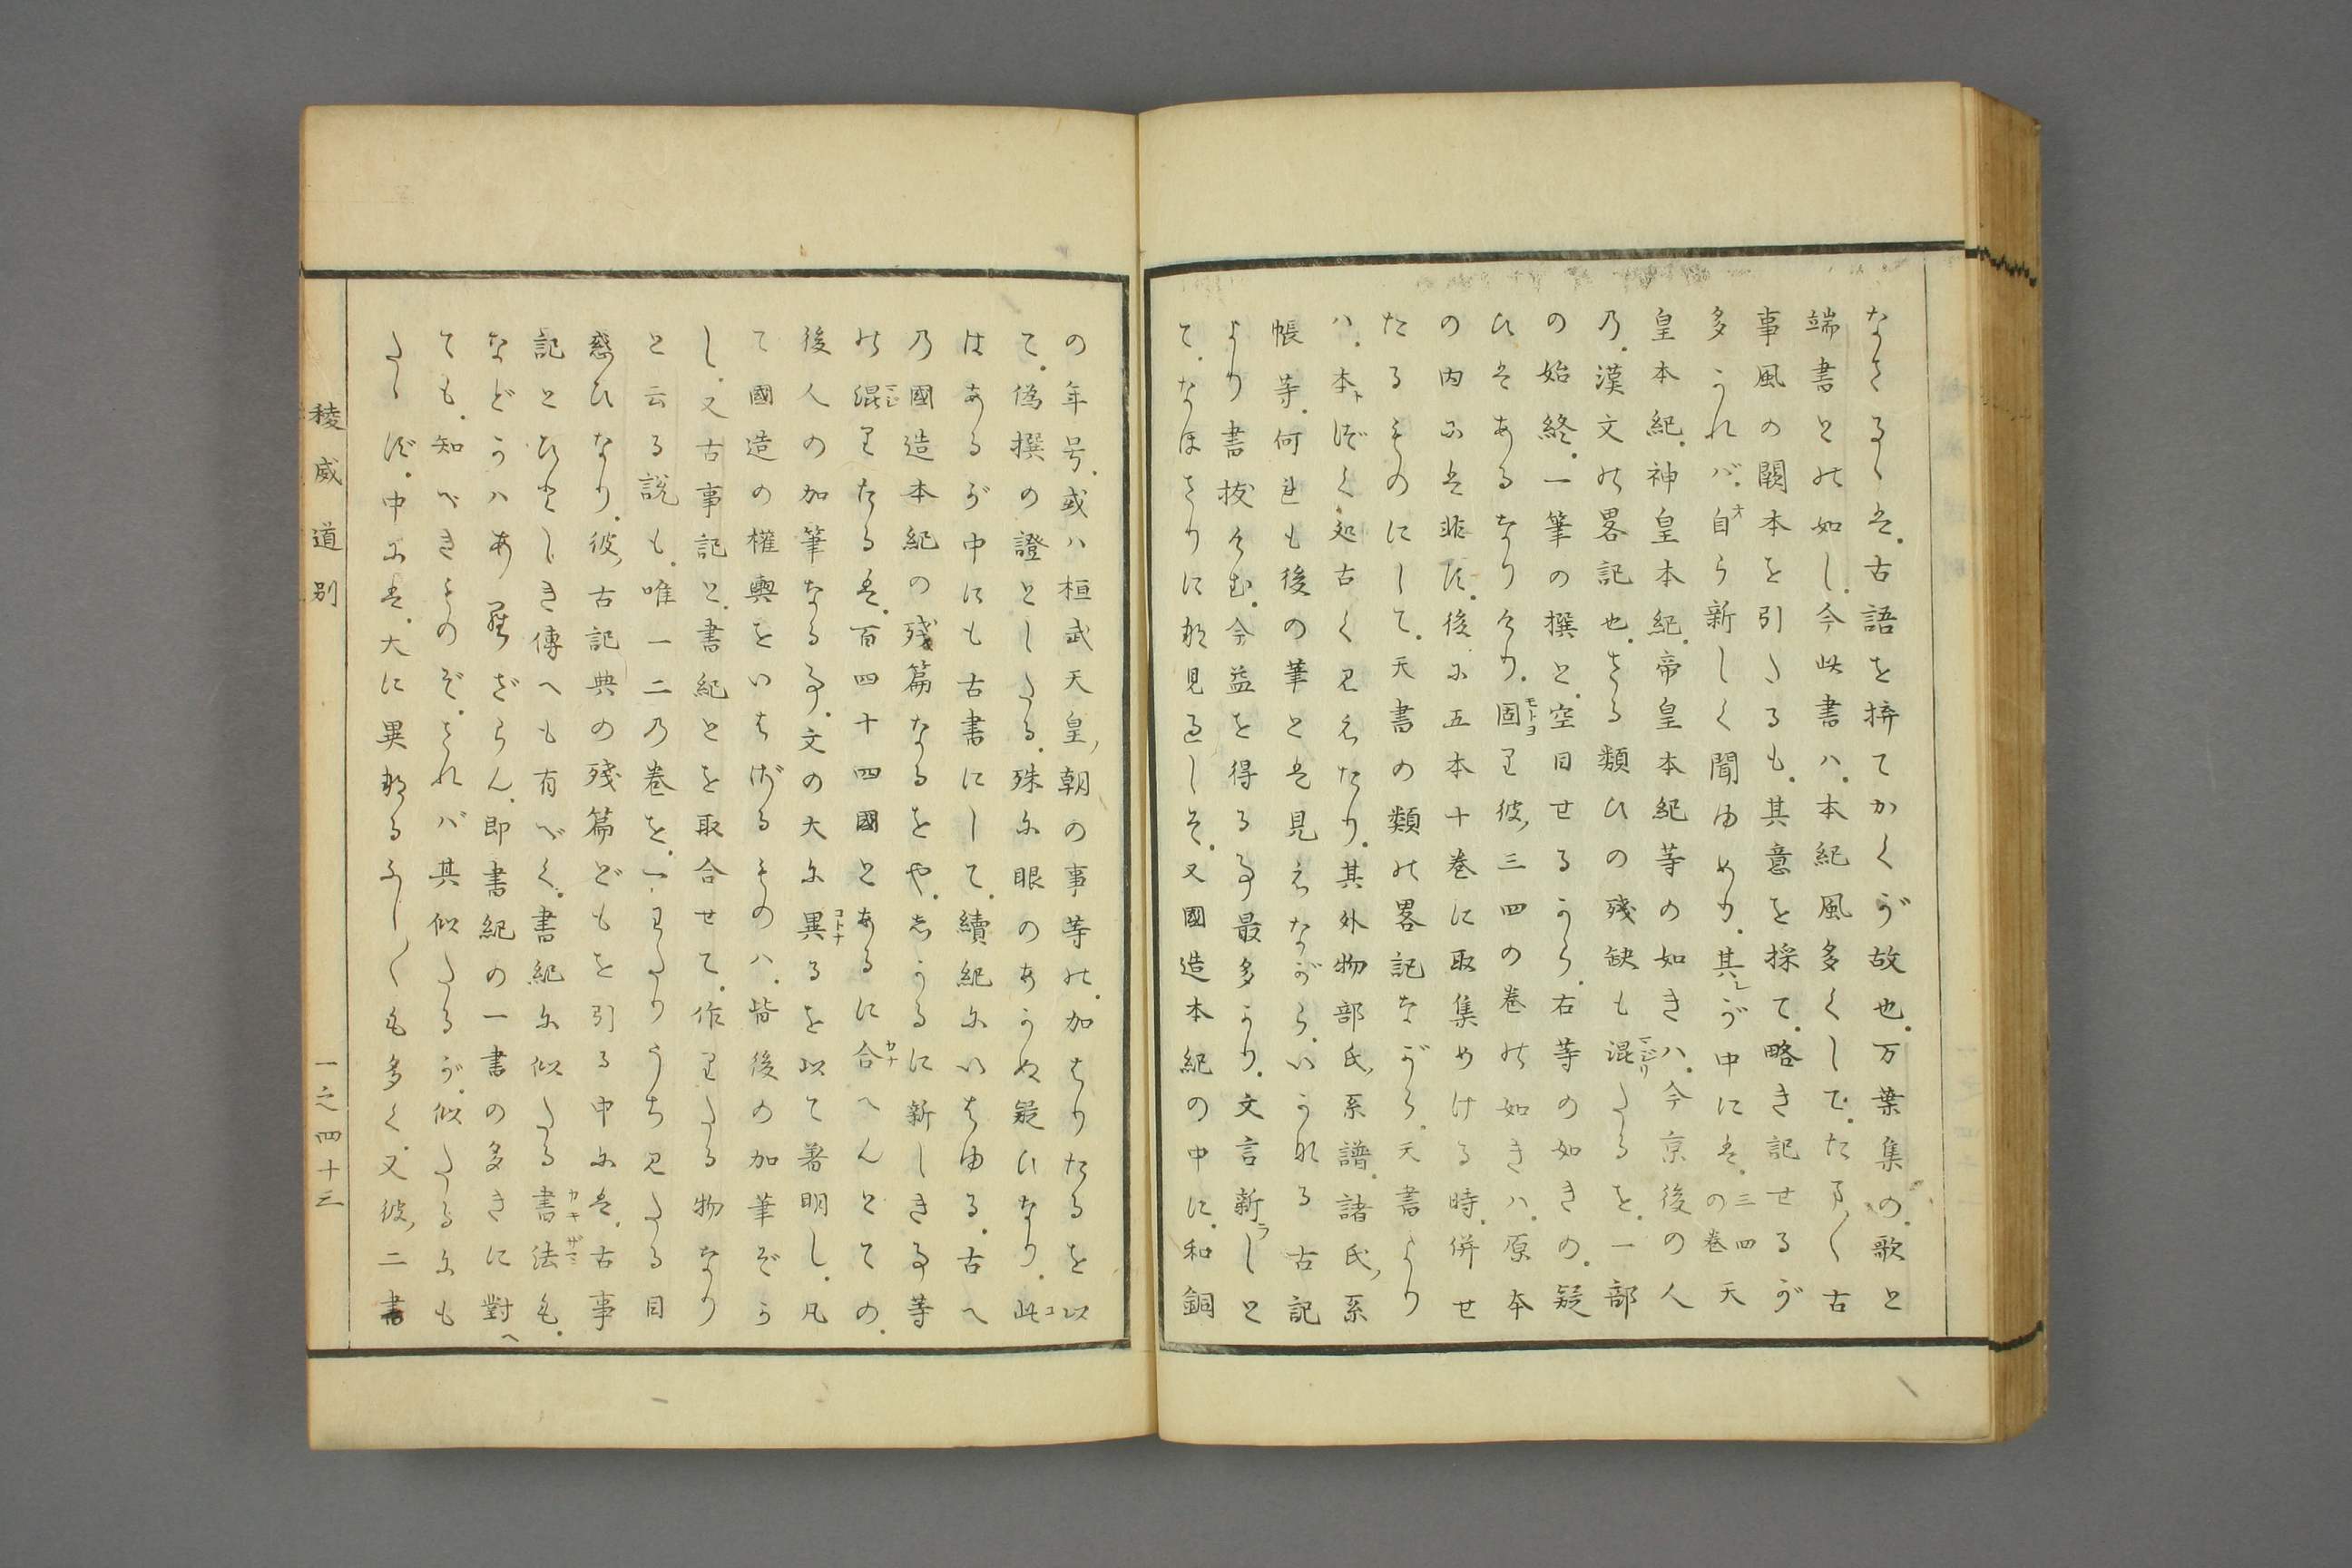 なさるゝは。古語を擠てかくが故也。万葉集の。歌と
端書との如し。今此書ハ。本紀風多くして。たま〳〵古
事風の闕本を引たるも。其意を採て。略き記せるが
多かれバ。自ら新しく聞ゆめり。其が中には。三四の巻天
皇本紀。神皇本紀。帝皇本紀等の如きハ。今京後の人
乃。漢文の畧記也。さる類ひの殘缺も混たるを。一部
の始終。一筆の撰と。空目せるから。右等の如きの。疑
ひはあるなりけり。固より彼三四の巻の如きハ。原本
の内には非ず。後に五本十巻に取集めける時。併せ
たるものにして。天書の類の畧記ながら。天書より
ハ。本づく処古く見えたり。其外物部氏系譜。諸氏系
帳等。何れも後の筆とは見えながら。いかなる古記
より書抜けむ。今益を得る事最多かり。文言新しと
て。なほざりにな見過しそ。又國造本紀の中に。和銅
の年号。或ハ桓武天皇朝の事等の。加はりたるを以
て。偽撰の證としたる。殊に眼のあかぬ疑ひなり。此
はあるが中にも古書にして。續紀にいはゆる。古へ
乃國造本紀の殘篇なるをや。志かるに新しき事等
の混りたるは。百四十四國とあるに合へんとての。
後人の加筆なる事。文の大に異るを以て著明し。凡
て國造の權輿をいはざるものハ。皆後の加筆ぞか
し。又古事記と。書紀とを取合せて。作りたる物なり
と云る説も。唯一二乃巻を。一わたりうち見たる目
惑ひなり。彼古記典の殘篇どもを引る中には。古事
記とひとしき傳へも有べく。書紀に似たる書法も。
などかハあらざらん。即書紀の一書の多きに對へ
ても。知べきものぞ。されバ其似たるが。似たるにも
たゝず。中には。大に異なるふし〴〵も多く。又彼二書
稜威道別
一之四十三